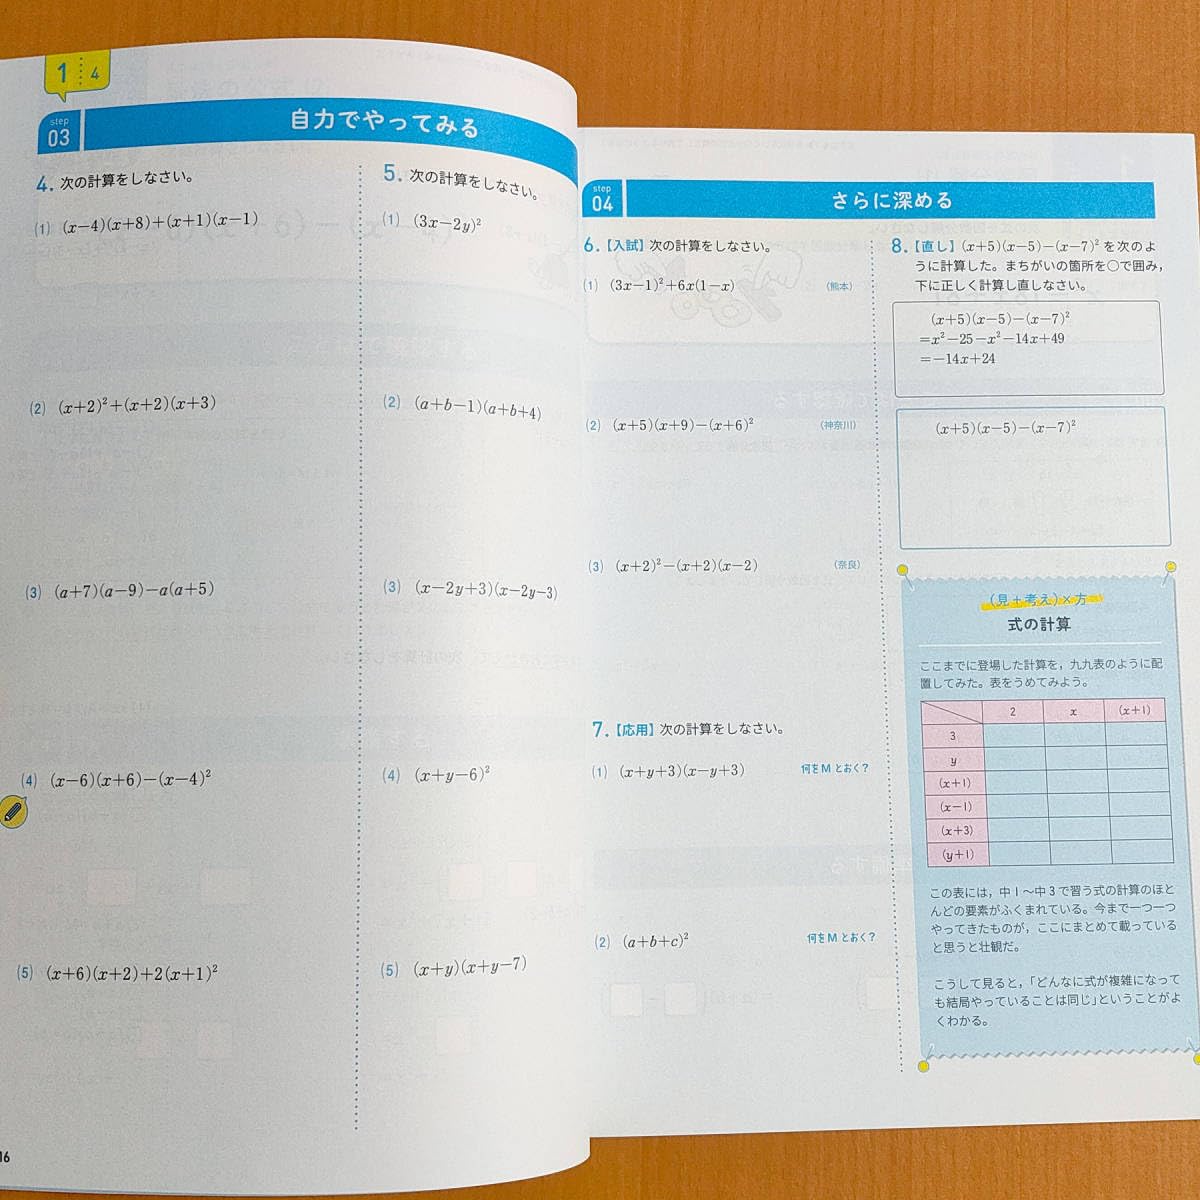 1 4
step
03
自力でやってみる
4. 次の計算をしなさい。
(1) (x−4)(x+8)+(x+1)(x−1)
(2) (x+2)²+(x+2)(x+3)
(3) (a+7)(a−9)−a(a+5)
(4) (x−6)(x+6)−(x−4)²
(5) (x+6)(x+2)+2(x+1)²
5. 次の計算をしなさい。
(1) (3x−2y)²
(2) (a+b−1)(a+b+4)
(3) (x−2y+3)(x−2y−3)
(4) (x+y−6)²
(5) (x+y)(x+y−7)
16
step
04
さらに深める
6.【入試】次の計算をしなさい。
(1) (3x−1)²+6x(1−x) (熊本)
(2) (x+5)(x+9)−(x+6)² (神奈川)
(3) (x+2)²−(x+2)(x−2) (奈良)
7.【応用】次の計算をしなさい。
(1) (x+y+3)(x−y+3) 何をMとおく?
(2) (a+b+c)² 何をMとおく?
8.【直し】(x+5)(x−5)−(x−7)²を次のよ
うに計算した。まちがいの箇所を○で囲み,
下に正しく計算し直しなさい。
(x+5)(x−5)−(x−7)²
=x²−25−x²−14x+49
=−14x+24
(x+5)(x−5)−(x−7)²
(見+考え)×方
式の計算
ここまでに登場した計算を,九九表のように配
置してみた。表をうめてみよう。
2 x (x+1)
3
y
(x+1)
(x−1)
(x+3)
(y+1)
この表には,中1〜中3で習う式の計算のほと
んどの要素がふくまれている。今まで一つ一つ
やってきたものが,ここにまとめて載っている
と思うと壮観だ。
こうして見ると,「どんなに式が複雑になって
も結局やっていることは同じ」ということがよ
くわかる。